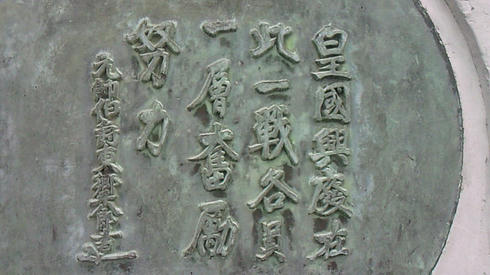 皇國興廢在
此一戰各員
一層奮励
努力
元帥伯爵東郷